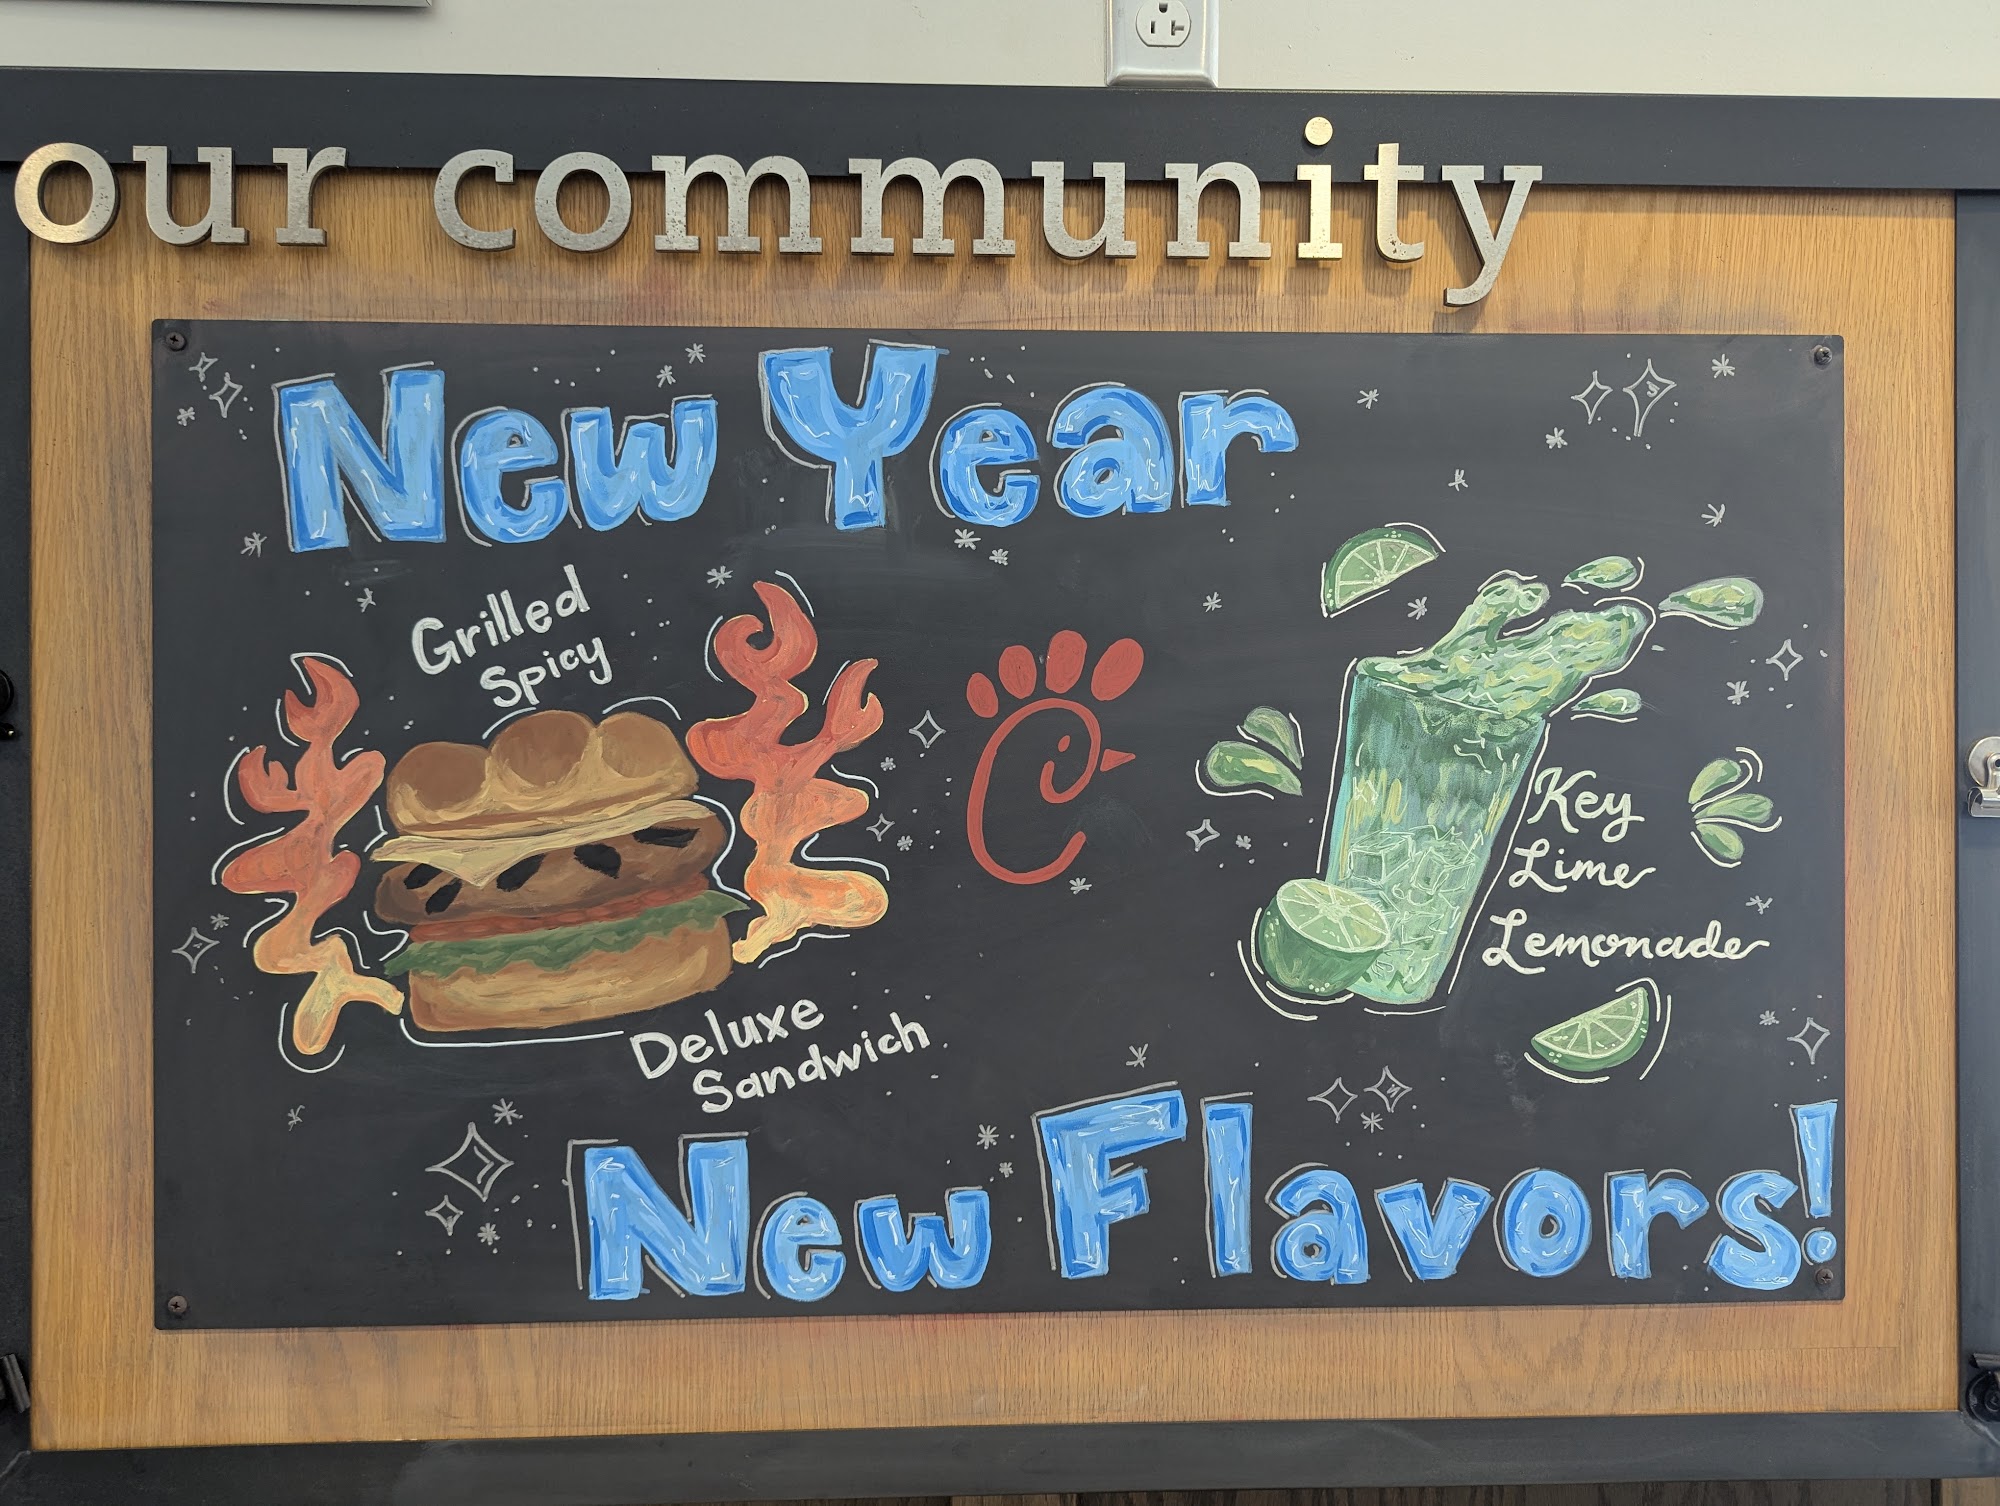 our community
New Year
Grilled
Spicy
Deluxe
Sandwich
Key
Lime
Lemonade
New Flavors!